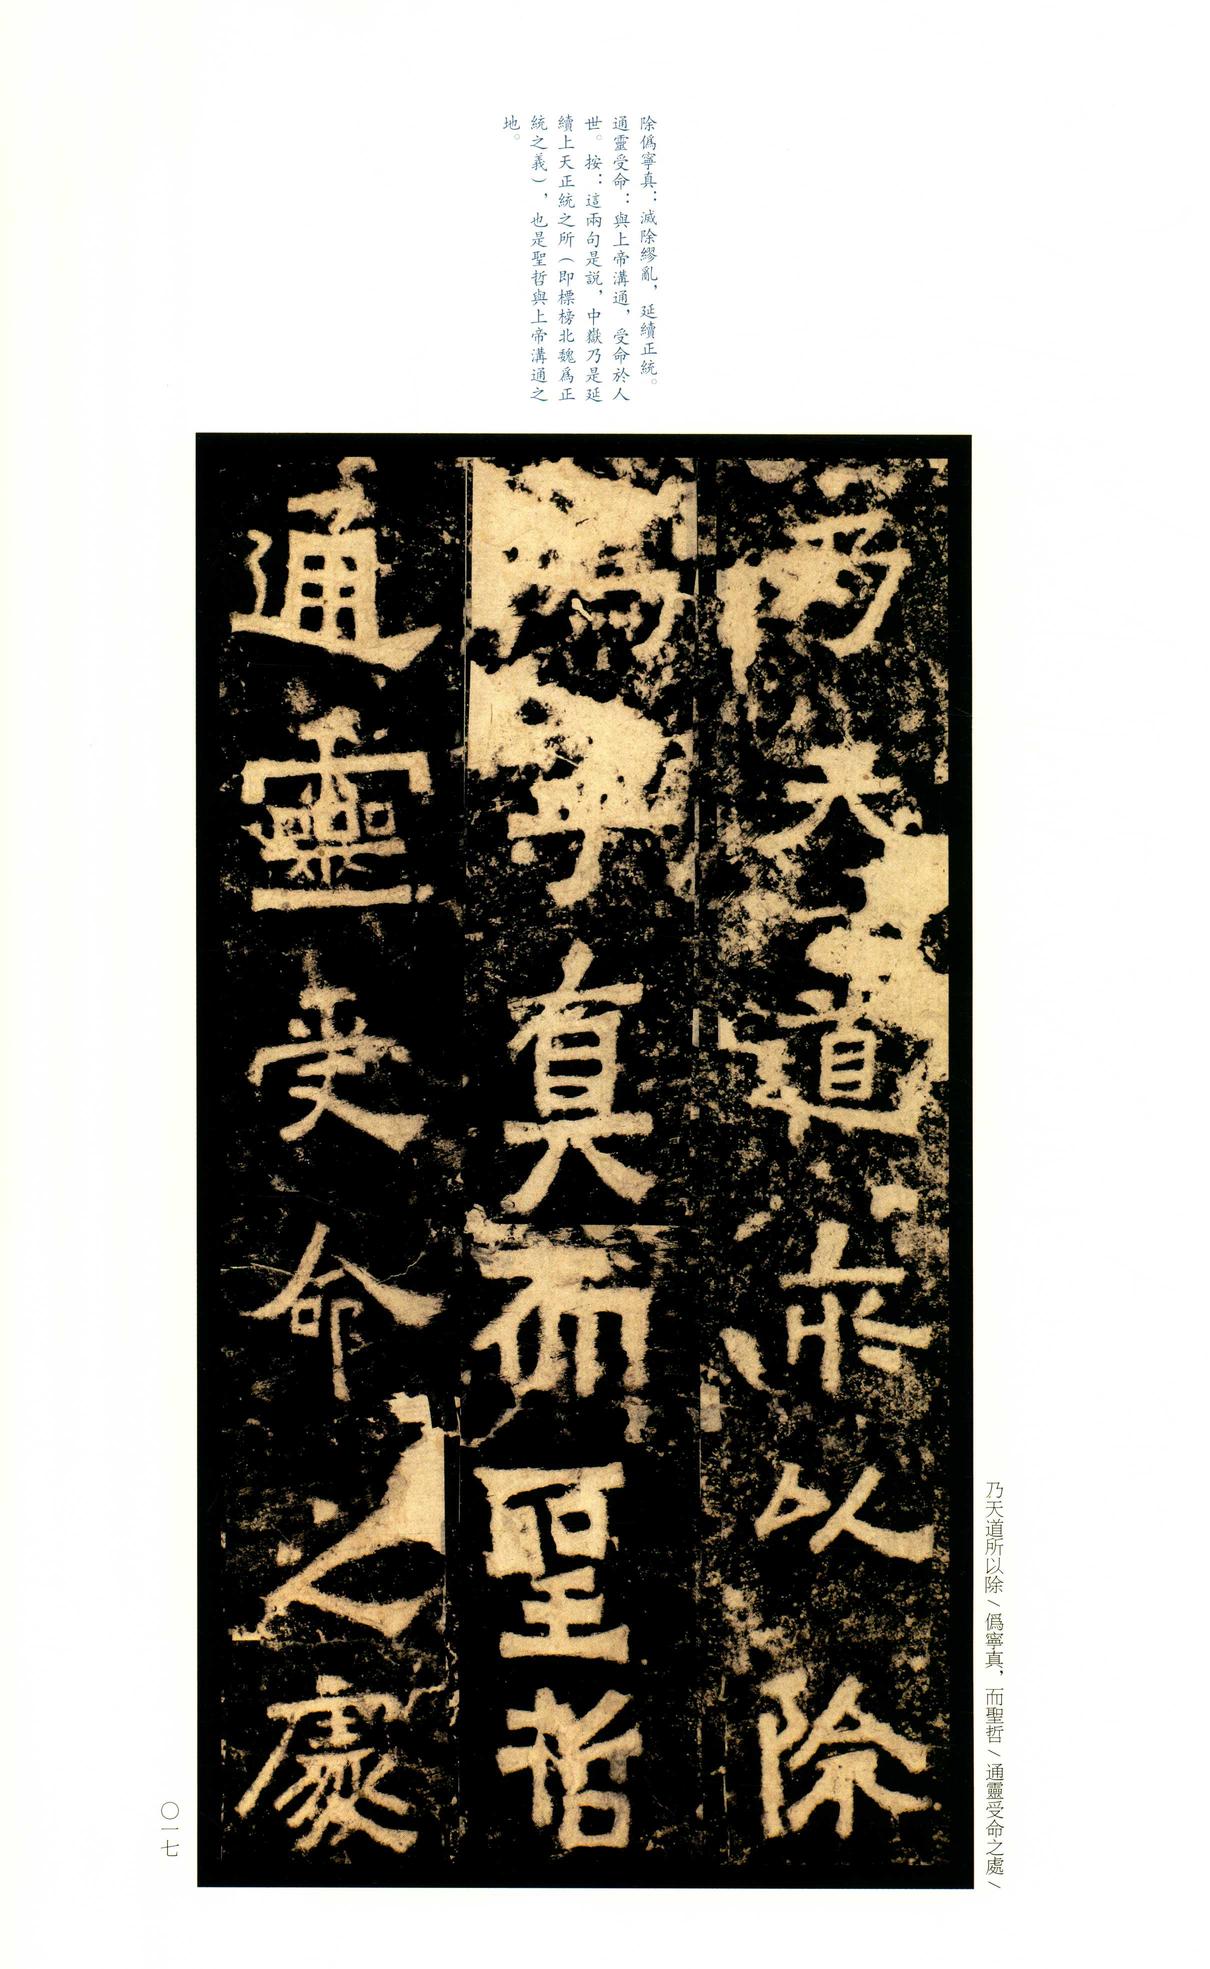 除僞寧真：滅除繆亂，延續正統。
通靈受命：與上帝溝通，受命於人
世。按：這兩句是説，中嶽乃是延
續上天正統之所（即標榜北魏爲正
統之義），也是聖哲與上帝溝通之
地。
乃天道所以除
僞寧真而聖哲
通靈受命之處
乃天道所以除／僞寧真，而聖哲／通靈受命之處／
〇一七